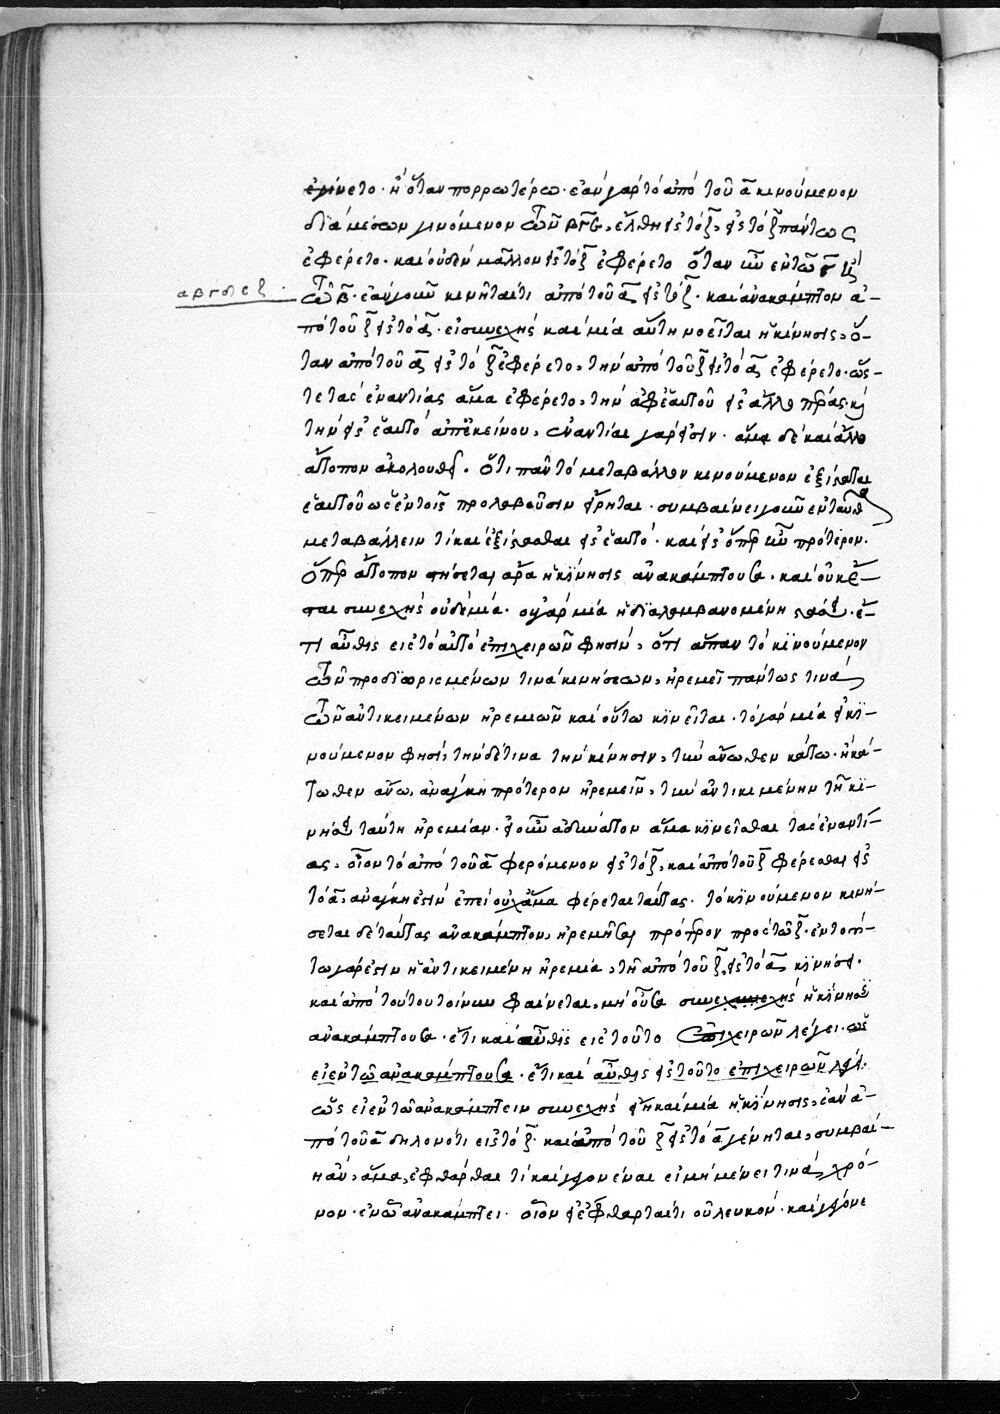 ἐγίνετο · ἢ ὅταν πορρωτέρω · ἐὰν γὰρ τὸ ἀπὸ τοῦ α κινούμενον
διὰ μέσων γινόμενον τῶν βγδε, ἔλθη εἰς τὸ ζ, εἰς τὸ ζ πάντως
ἐφέρετο · καὶ οὐδὲν μᾶλλον εἰς τὸ ζ ἐφέρετο ὅταν ἦν ἐν τῶ
αβγδεζ
τῶ β · ἐὰν γοῦν κινῆταί τι ἀπὸ τοῦ α εἰς τὸ ζ · καὶ ἀνακάμπτον ἀ-
πὸ τοῦ ζ εἰς τὸ α · εἰ συνεχὴς καὶ μία αὕτη νοεῖται ἡ κίνησις, ὅ-
ταν ἀπὸ τοῦ α εἰς τὸ ζ ἐφέρετο, τὴν ἀπὸ τοῦ ζ εἰς τὸ α ἐφέρετο · ὥς-
τε τὰς ἐναντίας ἅμα ἐφέρετο, τὴν ἀφ' ἑαυτοῦ εἰς ἄλλο πέρας · καὶ
τὴν εἰς ἑαυτὸ ἀπ' ἐκείνου, ἐναντίαι γάρ εἰσιν · ἅμα δὲ καὶ ἄλλο
ἄτοπον ἀκολουθεῖ · ὅτι πᾶν τὸ μεταβάλλον κινούμενον ἐξίσταται
ἑαυτοῦ ὡς ἐν τοῖς προλαβοῦσιν εἴρηται · συμβαίνει γοῦν ἐνταῦθα
μεταβάλλειν τί καὶ ἐξίστασθαι εἰς ἑαυτό · καὶ εἰς ὅπερ ἦν πρότερον ·
ὅπερ ἄτοπον στήσεται ἄρα ἡ κίνησις ἀνακάμπτουσα · καὶ οὐκ ἔ-
σται συνεχὴς οὐδὲ μία · οὐ γὰρ μία ἡ διαλαμβανομένη στάσει · ἔ-
τι αὖθις εἰς τὸ αὐτὸ ἐπιχειρῶν φησίν, ὅτι ἅπαν τὸ κινούμενον
τῶν προδιωρισμένων τινὰ κινήσεων, ἠρεμεῖ πάντως τινὰ
τῶν ἀντικειμένων ἠρεμιῶν καὶ οὕτω κινεῖται · τὸ γὰρ μία κι-
νούμενον φησὶ, τὴν δέ τινα τὴν κίνησιν, τὴν ἄνωθεν κάτω · ἢ κά-
τωθεν ἄνω, ἀνάγκη πρότερον ἠρεμεῖν, τὴν ἀντικειμένην τῆ κι-
νήσει ταύτη ἠρεμίαν · εἰ γοῦν ἀδύνατον ἅμα κινεῖσθαι τὰς ἐναντί-
ας, οἷον τὸ ἀπὸ τοῦ α φερόμενον εἰς τὸ ζ, καὶ ἀπὸ τοῦ ζ φέρεσθαι εἰς
τὸ α, ἀνάγκη ἐστὶν ἐπεὶ οὐχ ἅμα φέρεται ταύτας · τὸ κινούμενον κινή-
σεται δὲ ταύτας ἀνακάμπτον, ἠρεμῆσαι πρότερον πρὸς τῶ ζ · ἐν τού-
τω γάρ ἐστιν ἡ ἀντικειμένη ἠρεμία, τῆ ἀπὸ τοῦ ζ, εἰς τὸ α κινήσει ·
καὶ ἀπὸ τούτου τοίνυν φαίνεται, μὴ οὖσα συνεχὴς ἡ κίνησις
ἀνακάμπτουσα · ἔτι καὶ αὖθις εἰς τοῦτο ἐπιχειρῶν λέγει · ὡς
εἰ ἐν τῶ ἀνακάμπτουσα · ἔτι καὶ αὖθις εἰς τοῦτο ἐπιχειρῶν λέγει ·
ὡς εἰ ἐν τῶ ἀνακάμπτειν συνεχὴς εἴη καὶ μία ἡ κίνησις, ἐὰν ἀ-
πὸ τοῦ α δηλονότι εἰς τὸ ζ · καὶ ἀπὸ τοῦ ζ εἰς τὸ α γένηται, συμβαί-
η ἂν, ἅμα, ἐφθάρθαι τί καὶ γεγονέναι εἰ μὴ μένει τινὰ χρό-
νον · ἐν ὧ ἀνακάμπτει · οἷον εἰ ἔφθαρταί τι οὐ λευκόν · καὶ γέγονε